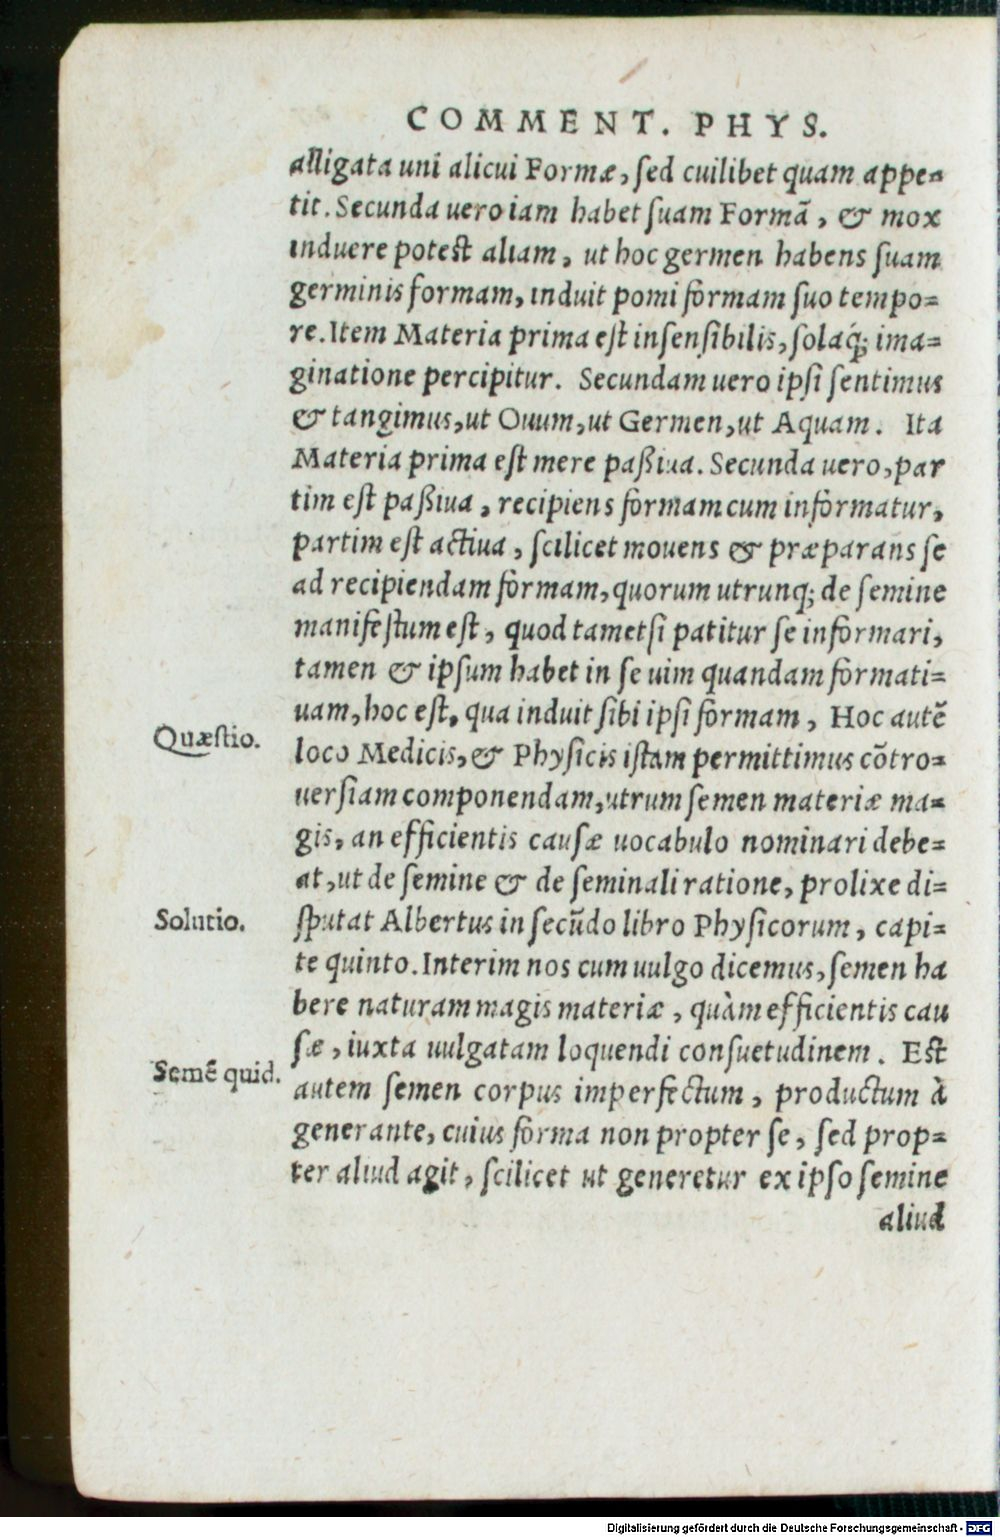 COMMENT. PHYS.
alligata uni alicui Formæ, sed cuilibet quam appe-
tit. Secunda uero iam habet suam Formã, & mox
induere potest aliam, ut hoc germen habens suam
germinis formam, induit pomi formam suo tempo=
re. Item Materia prima est insensibilis, solaq́; ima=
ginatione percipitur. Secundam uero ipsi sentimus
& tangimus, ut Ouum, ut Germen, ut Aquam. Ita
Materia prima est mere paßiua. Secunda uero, par
tim est paßiua, recipiens formam cum informatur,
partim est actiua, scilicet mouens & præparans se
ad recipiendam formam, quorum utrunq; de semine
manifestum est, quod tametsi patitur se informari,
tamen & ipsum habet in se uim quandam formati=
uam, hoc est, qua induit sibi ipsi formam, Hoc autẽ
Quæstio.
loco Medicis, & Physicis istam permittimus cõtro=
uersiam componendam, utrum semen materiæ ma=
gis, an efficientis causæ uocabulo nominari debe=
at, ut de semine & de seminali ratione, prolixe di=
Solutio.
sputat Albertus in secũdo libro Physicorum, capi=
te quinto. Interim nos cum uulgo dicemus, semen ha
bere naturam magis materiæ, quàm efficientis cau
sæ, iuxta uulgatam loquendi consuetudinem. Est
Semẽ quid.
autem semen corpus imperfectum, productum à
generante, cuius forma non propter se, sed prop=
ter aliud agit, scilicet ut generetur ex ipso semine
aliud
Digitalisierung gefördert durch die Deutsche Forschungsgemeinschaft - DFG